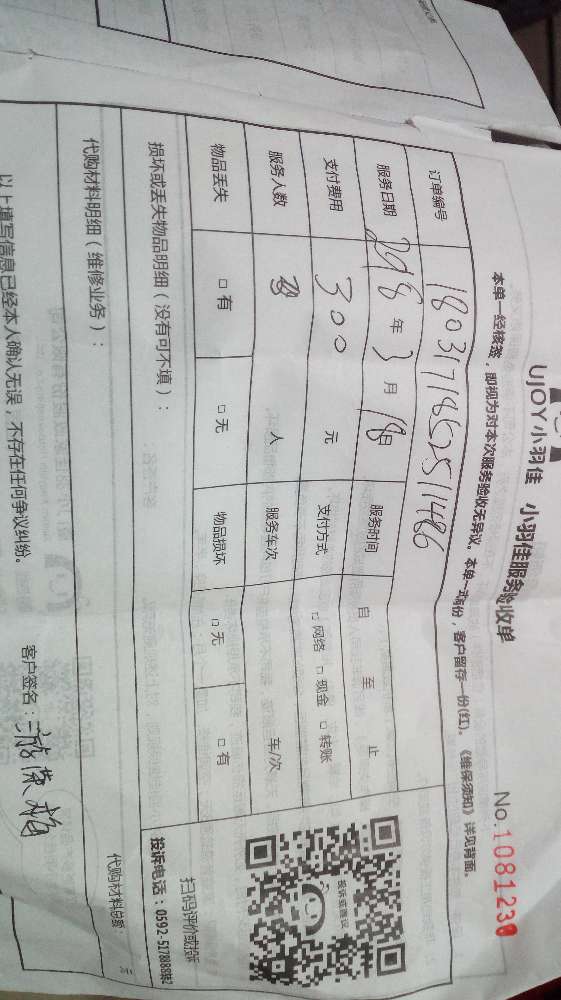 UJOY小羽佳 小羽佳服务验收单
No.1081230
本单一经核签，即视为对本次服务验收无异议。本单一式两份，客户留存一份(红)。《维保须知》详见背面。
订单编号
服务日期 2018 年 3 月 18日 服务时间 自 至 止
支付费用 300 元 支付方式 □网络 □现金 □转账
服务人数 人 服务车次 车/次
物品丢失 □有 □无 物品损坏 □无 □有
损坏或丢失物品明细（没有可不填）：
扫码评价或投诉
投诉电话：0592-5178888转2
代购材料明细（维修业务）：
代购材料总额：
以上填写信息已经本人确认无误，不存在任何争议纠纷。
客户签名：